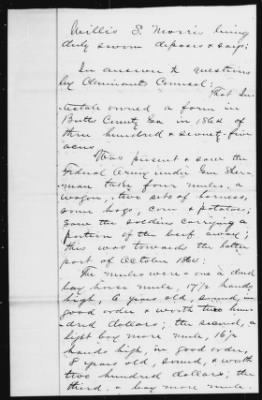 Willis S. Morris being
duly sworn deposes & says:
In answer to questions
by Claimants Counsel:
That In
testate owned a farm in
Butts County Ga in 1864 of
three hundred & seventy-five
acres
Was present & saw the
Federal Army under Gen Sher
man take four mules, a
wagon, two sets of harness,
some hogs, corn & potatoes;
saw the soldiers carrying a
portion of the beef away;
this was towards the latter
part of October 1864:
The mules were: one a dark
bay horse mule, 17½ hands
high, 6 years old, sound, in
good order & worth two hun
dred dollars; the second, a
light bay mare mule, 16½
hands high, in good order,
8 years old, sound, & worth
two hundred dollars; the
third, a bay mare mule.